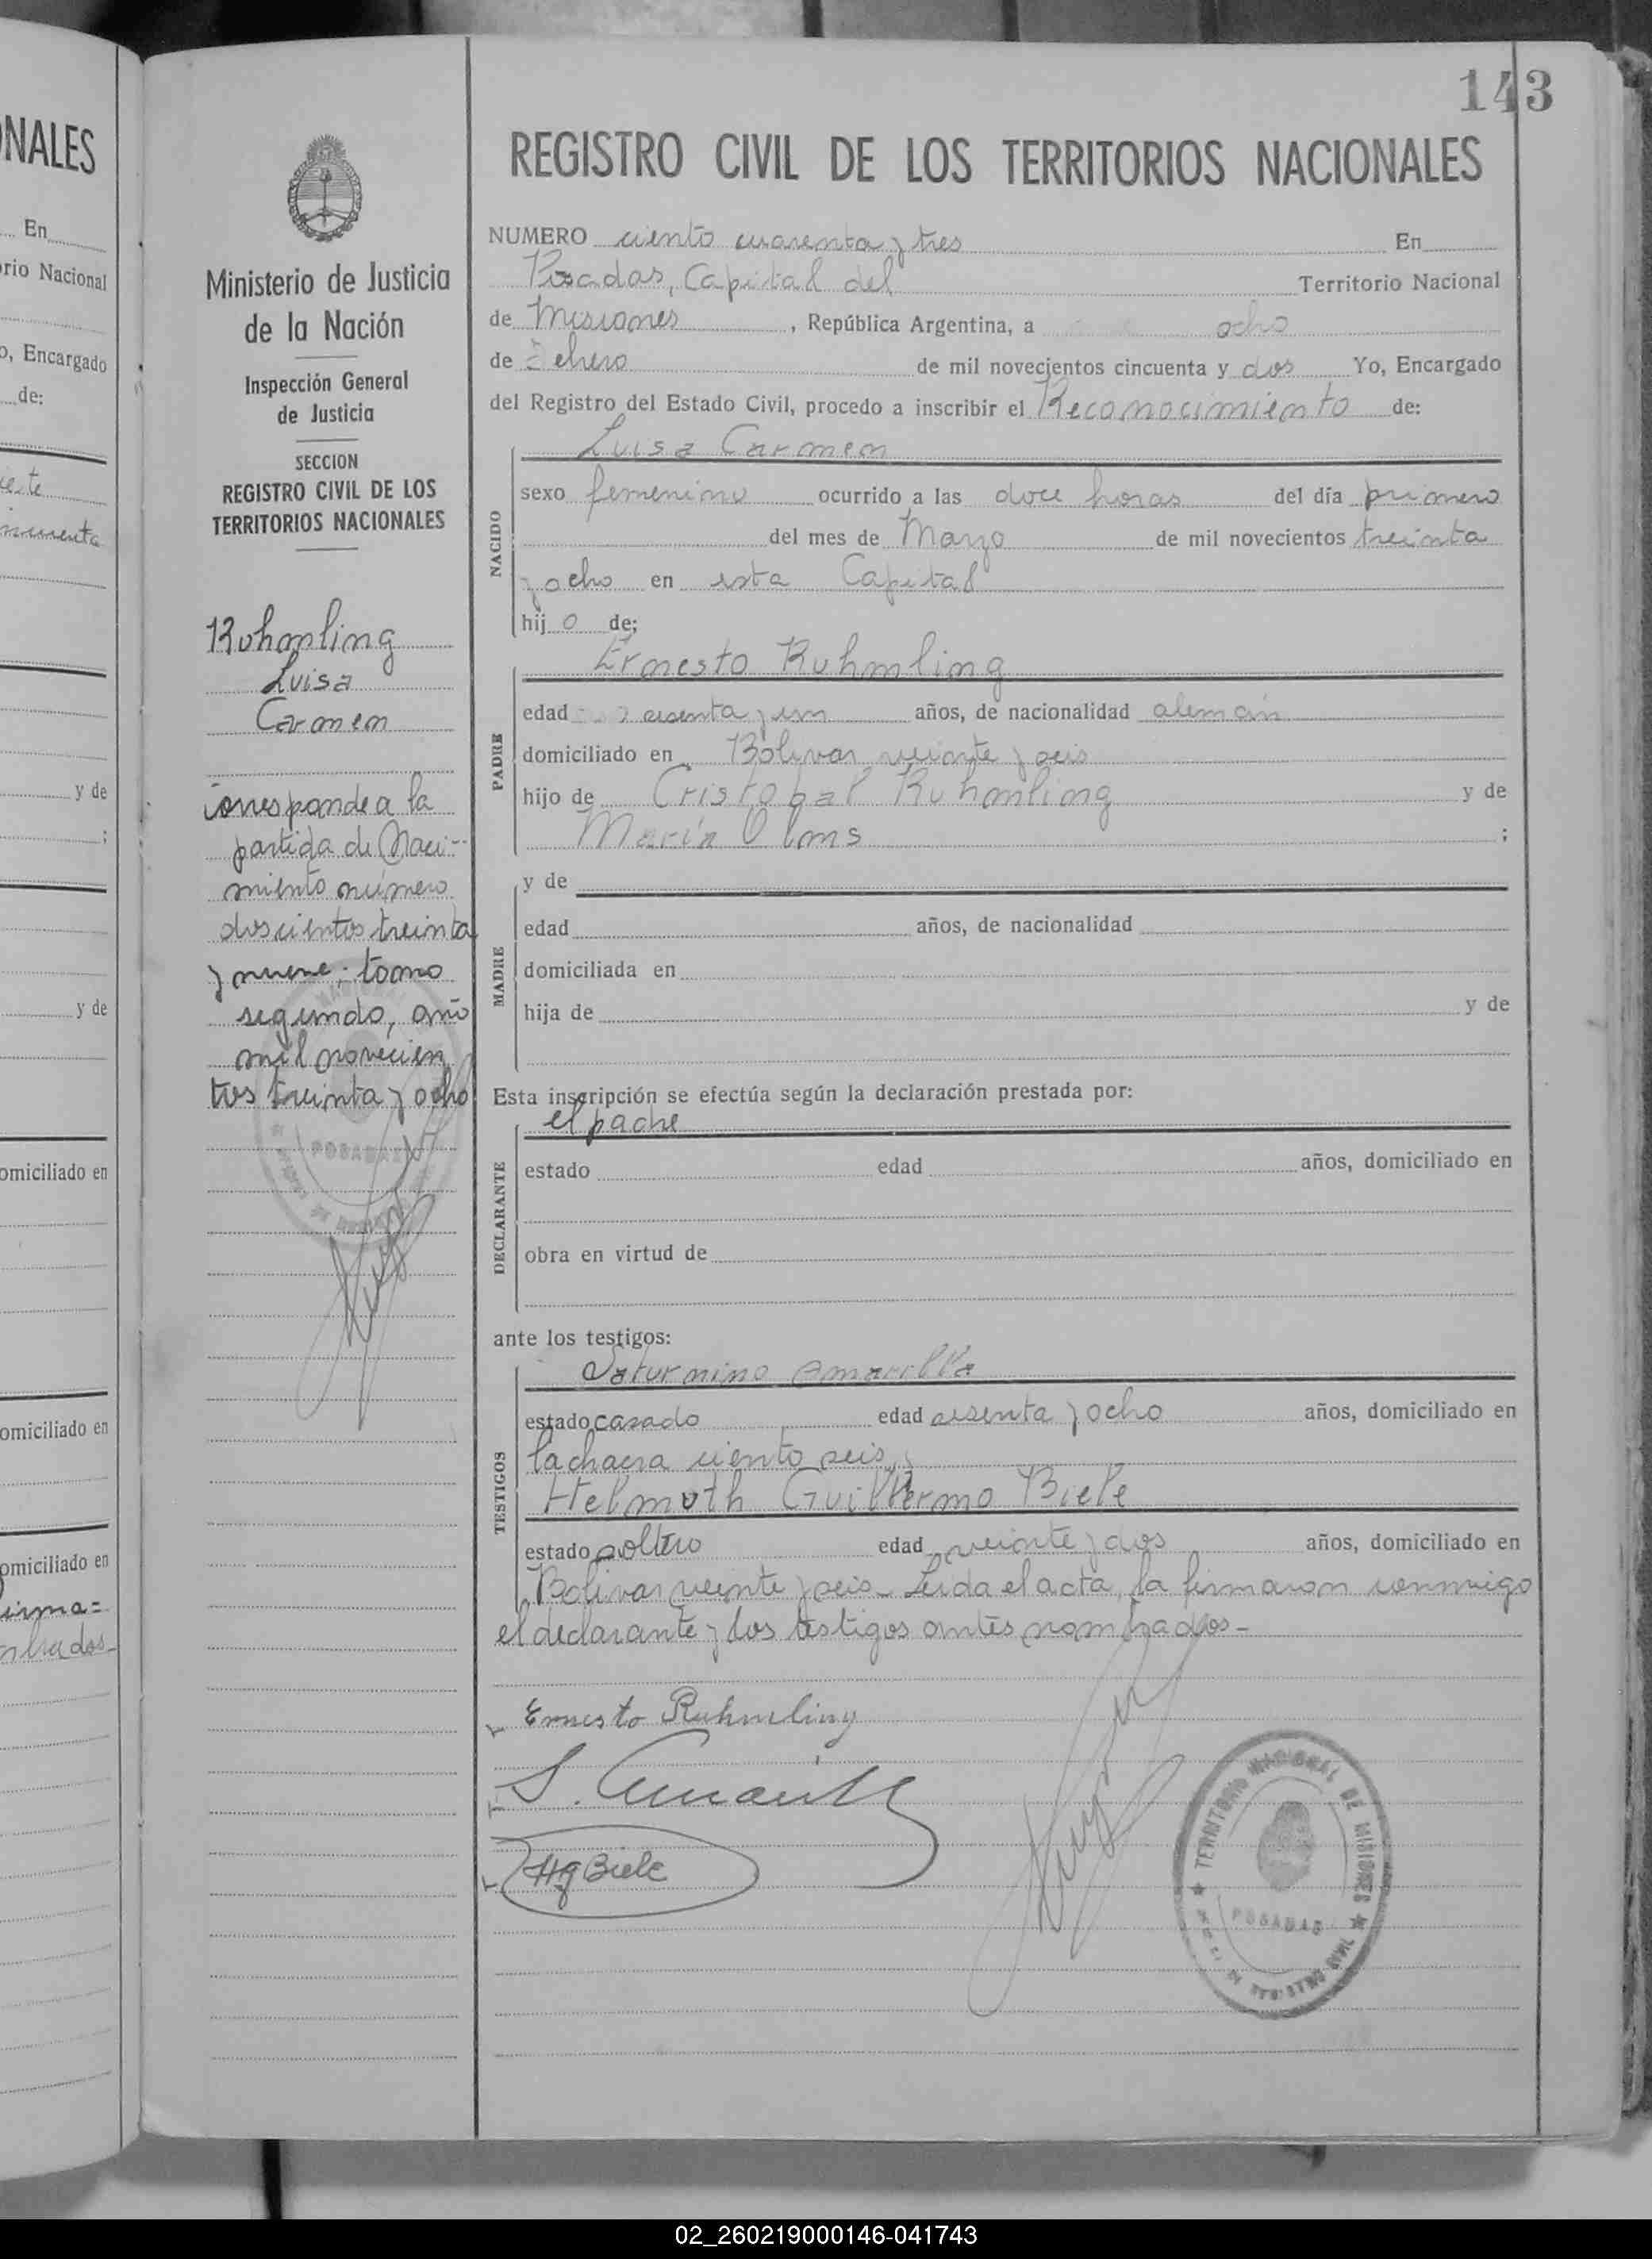 NALES
En
rio Nacional
o, Encargado
de:
y de
;
y de
omiciliado en
omiciliado en
omiciliado en
firma=
143
Ministerio de Justicia
de la Nación
Inspección General
de Justicia
SECCION
REGISTRO CIVIL DE LOS
TERRITORIOS NACIONALES
Ruhmling
Luisa
Carmen
corresponde a la
partida de Naci-
miento número
doscientos treinta
y nueve; tomo
segundo, año
mil novecien
tos treinta y ocho
POSADAS
REGISTRO CIVIL DE LOS TERRITORIOS NACIONALES
NUMERO ciento cuarenta y tres En
Posadas, Capital del Territorio Nacional
de Misiones, República Argentina, a ocho
de Enero de mil novecientos cincuenta y dos Yo, Encargado
del Registro del Estado Civil, procedo a inscribir el Reconocimiento de:
Luisa Carmen
NACIDO
sexo femenino ocurrido a las doce horas del día primero
del mes de Marzo de mil novecientos treinta
y ocho en esta Capital
hij o de;
Ernesto Ruhmling
PADRE
edad sesenta y un años, de nacionalidad alemán
domiciliado en Bolivar veinte y seis
hijo de Cristobal Ruhmling y de
María Olms ;
MADRE
y de
edad años, de nacionalidad
domiciliada en
hija de y de
Esta inscripción se efectúa según la declaración prestada por:
el padre
DECLARANTE
estado edad años, domiciliado en
obra en virtud de
ante los testigos:
Saturnino Amarilla
TESTIGOS
estado casado edad sesenta y ocho años, domiciliado en
la chacra ciento seis,
Helmuth Guillermo Biele
estado soltero edad veinte y dos años, domiciliado en
Bolivar veinte y seis_ Leida el acta, la firmaron conmigo
el declarante y los testigos antes nombrados-
Ernesto Ruhmling
S. Amarilla
HgBiele
TERRITORIO NACIONAL DE MISIONES
POSADAS
REGISTRO CIVIL
02_260219000146-041743